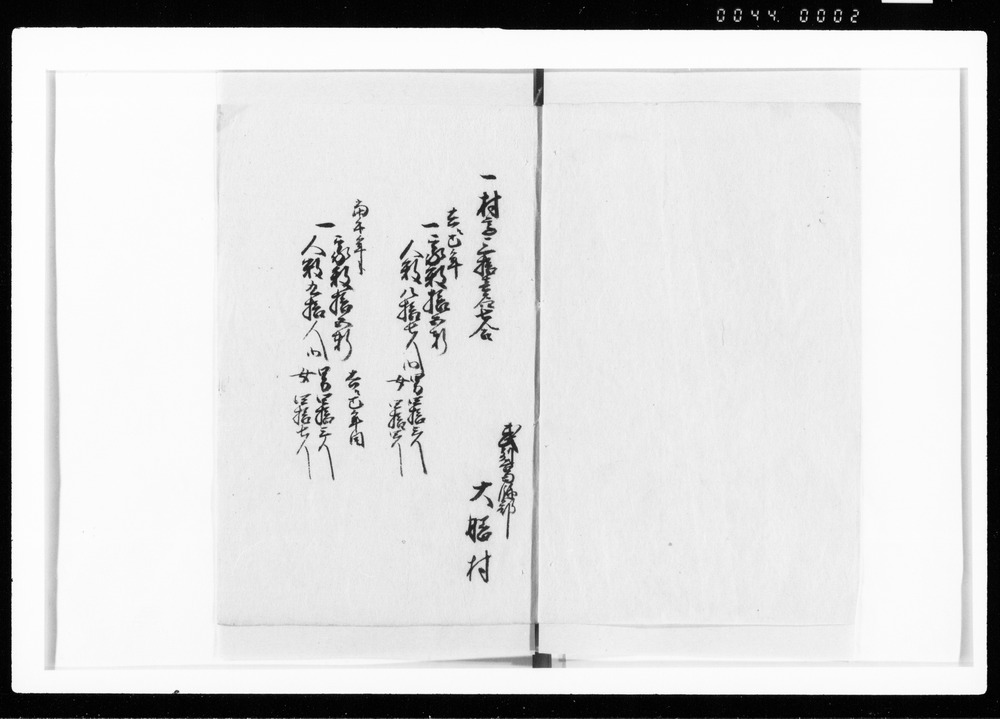 0044 0002
大膳村
一村高三拾壱石七合
去巳年
一家数拾五軒
人数八拾七人内
男四拾三人
女四拾四人
当午年
一家数拾五軒
去巳年同
一人数九拾人内
男四拾三人
女四拾七人